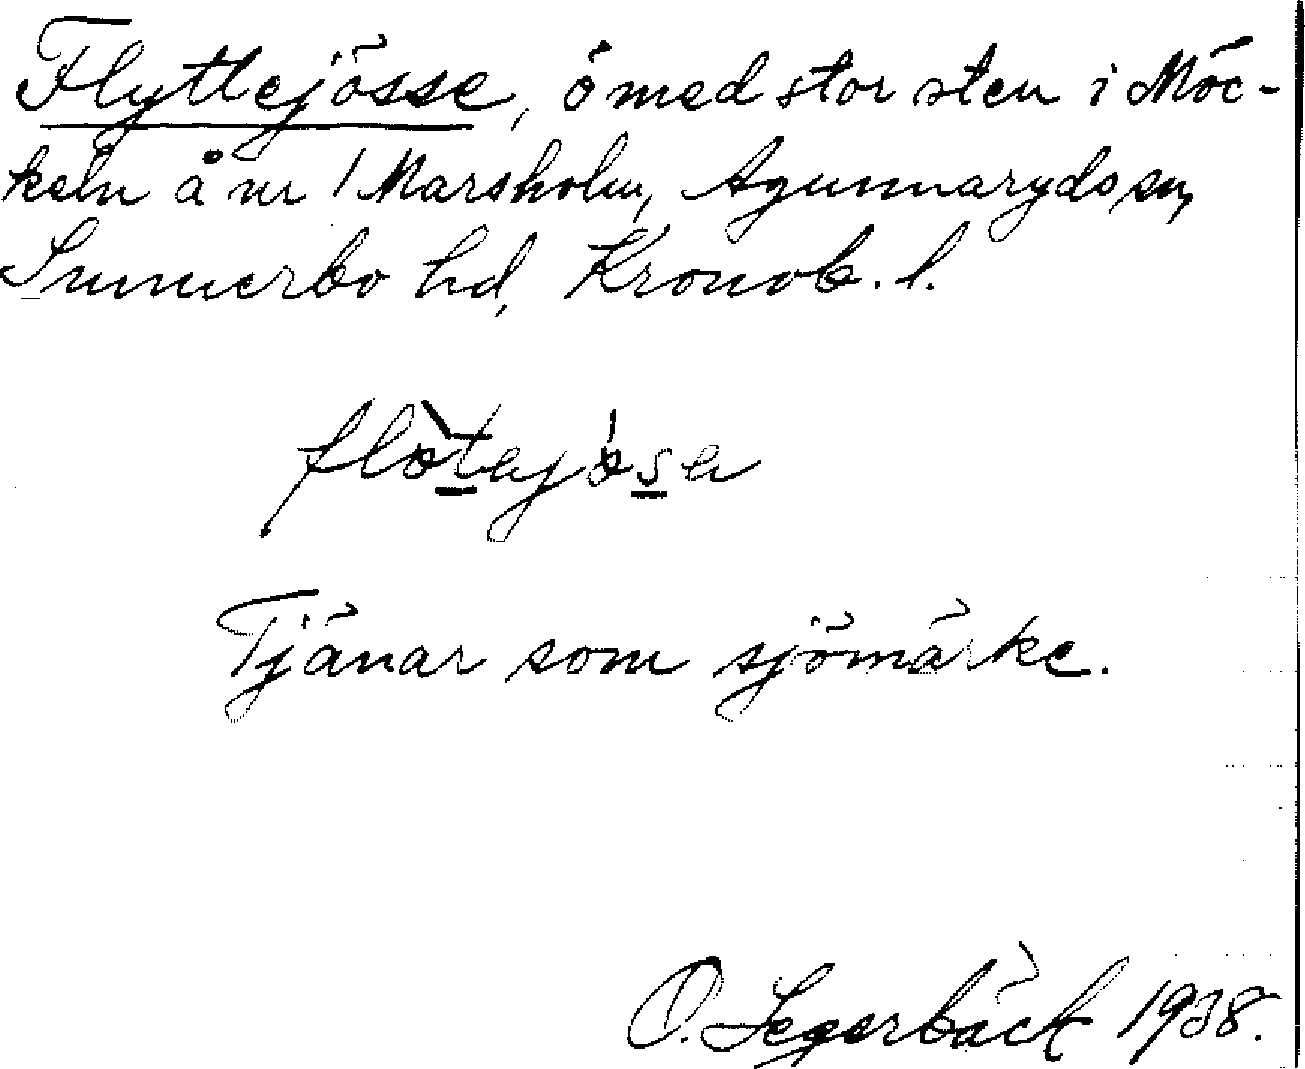 Flyttejösse, ö med stor sten i Möc-
keln å nr 1 Marsholm, Agunnaryds sn,
Sunnerbo hd, Kronob. l.
flö̀tajö́sa
Tjänar som sjömärke.
O. Segerbäck 1938.